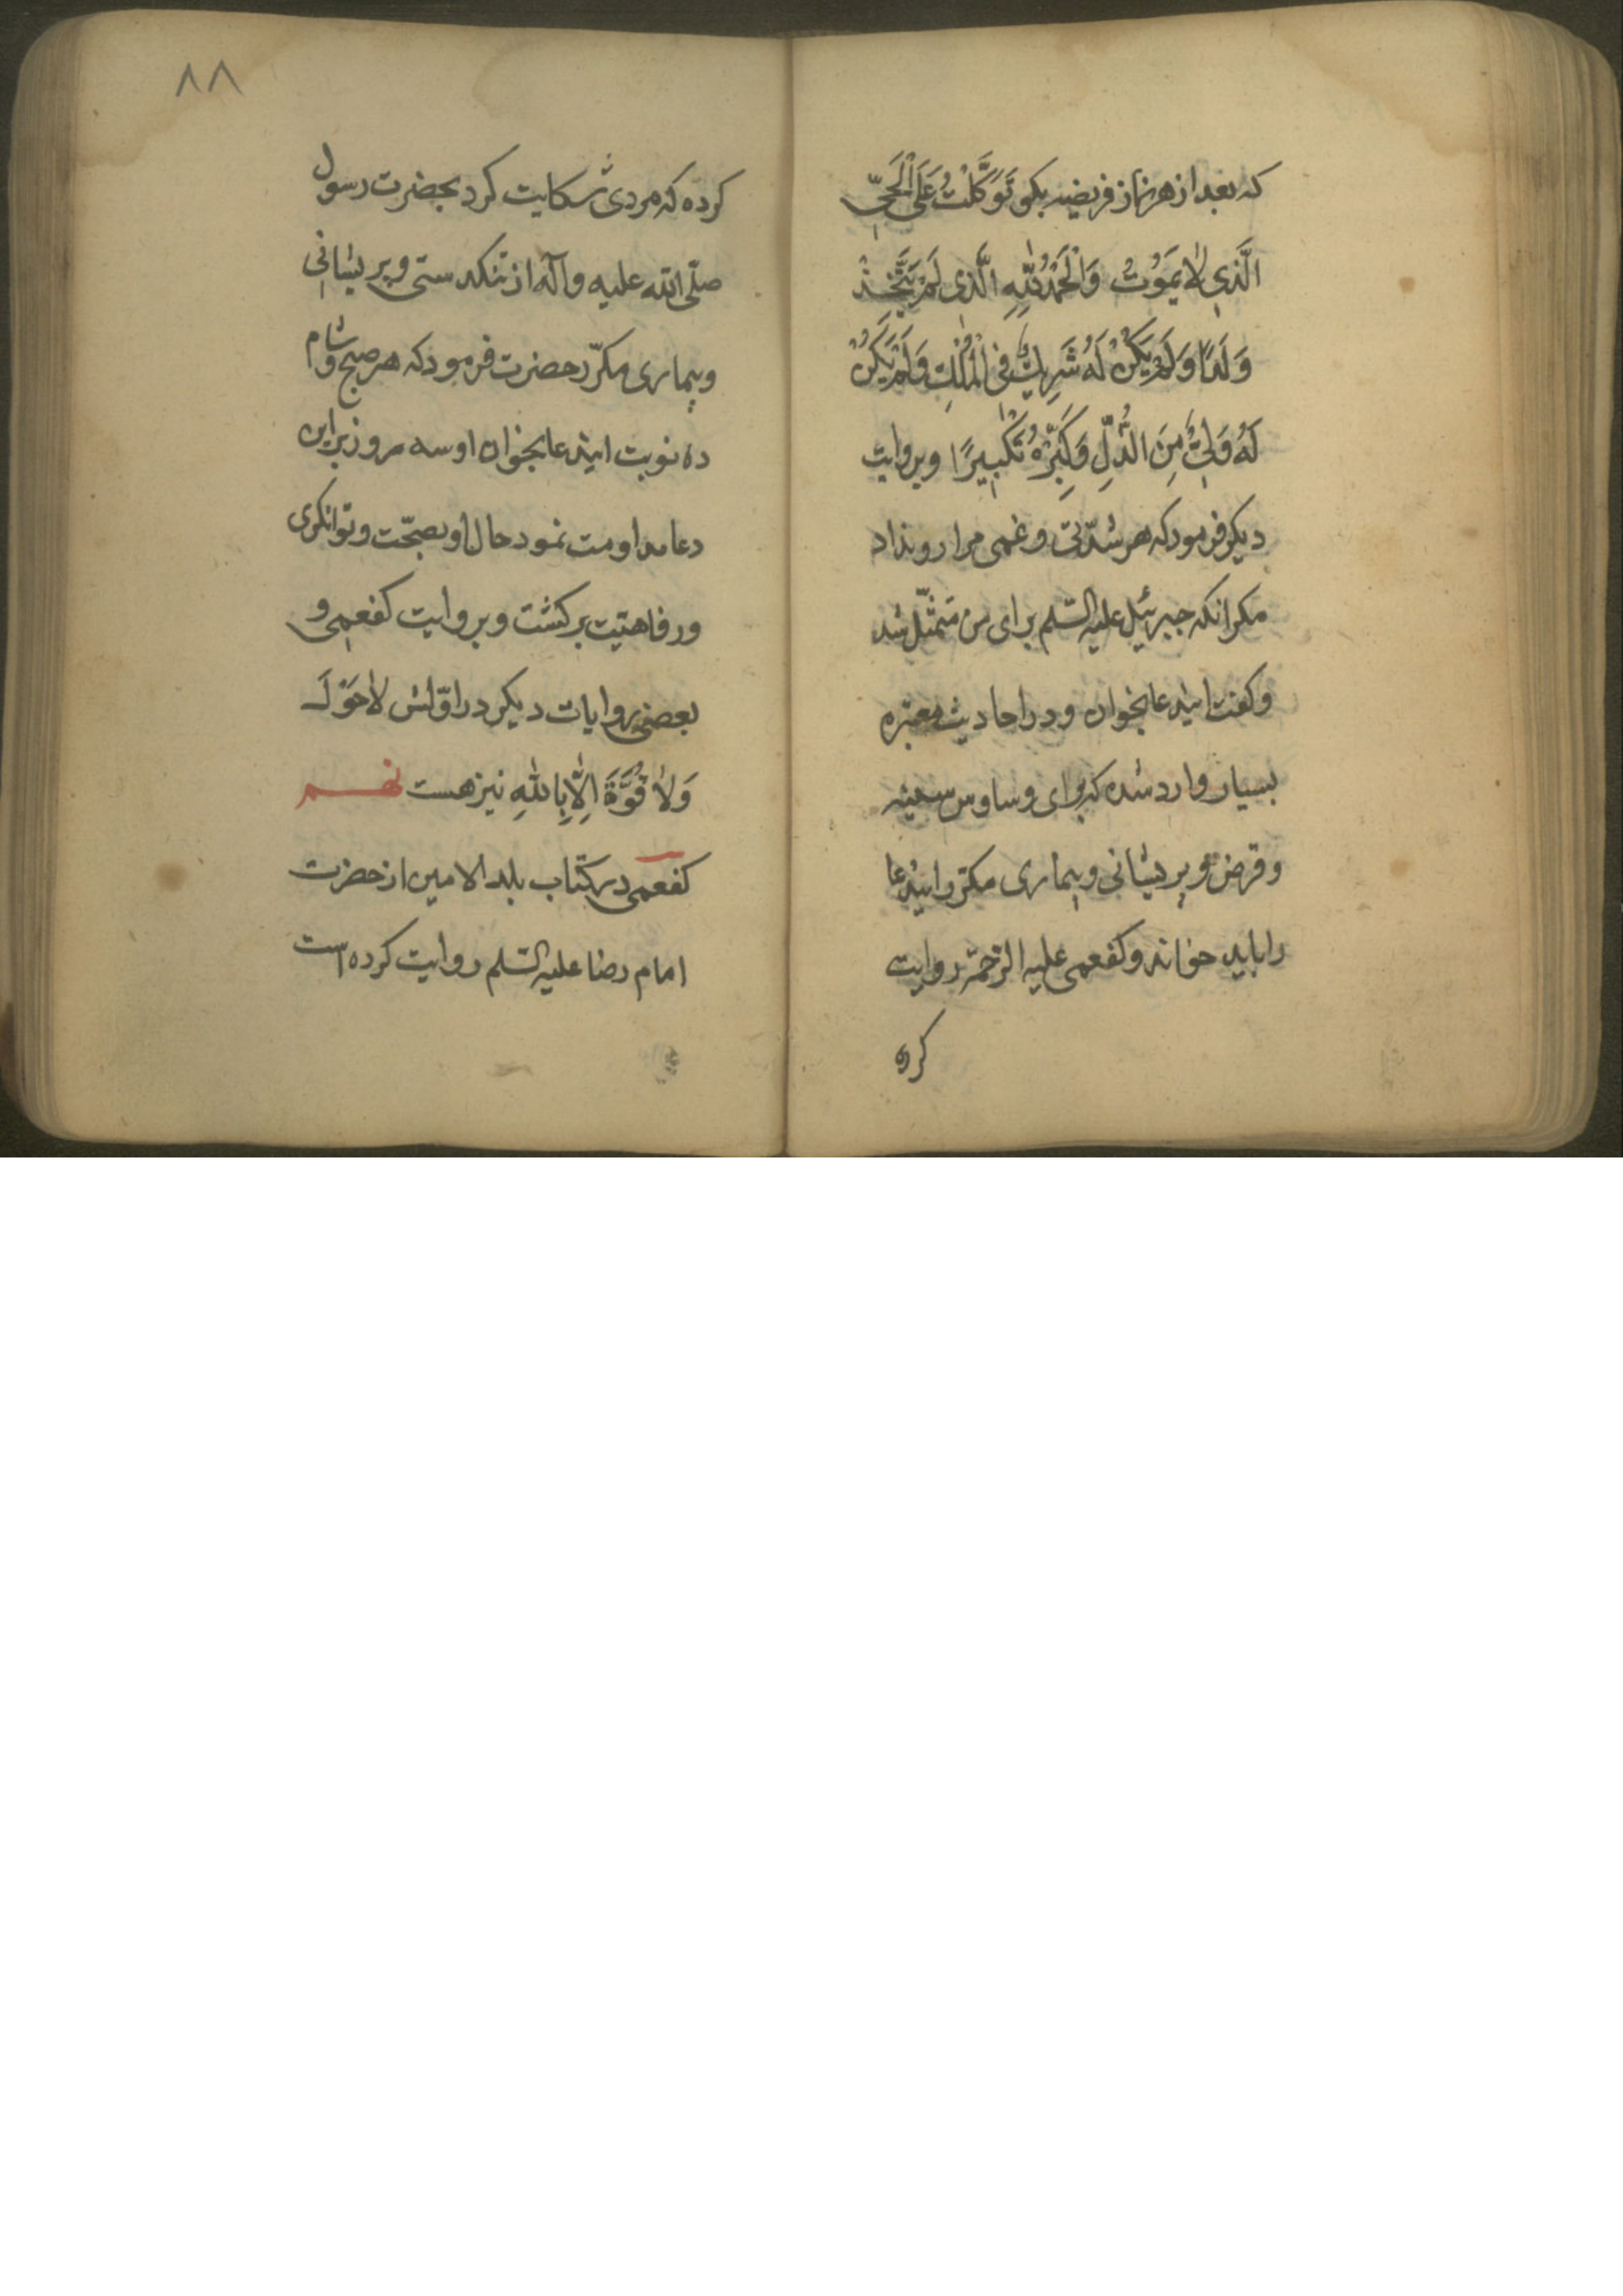 که بعد از هر نماز فریضه بکو تَوَکَّلْتُ عَلَی الْحَیِّ
الَّذِی لٰا یَمُوتُ وَالْحَمْدُ لِلّٰهِ الَّذِی لَمْ یَتَّخِذْ
وَلَدًا وَلَمْ یَکُنْ لَهُ شَرِیكٌ فِی الْمُلْكِ وَلَمْ یَکُنْ
لَهُ وَلِیٌّ مِنَ الذُّلِّ وَکَبِّرْهُ تَکْبِیرًا و بروایت
دیکر فرمود که هر شدّتی و غمی مرا رو نداد
مکر انکه جبرئیل علیه السّلم برای من متمثّل شد
و کفت ایندعا بخوان و در احادیث معتبره
بسیار وارد شده که برای وساوس سینه
و قرض و پریشانی و بیماری مکرّر ایندعا
را باید خواند و کفعمی علیه الرّحمة روایت
کرده
۸۸
کرده که مردی شکایت کرد بحضرت رسول
صلّی الله علیه وآله از تنکدستی و پریشانی
و بیماری مکرّر حضرت فرمود که هر صبح و شام
ده نوبت ایندعا بخوان او سه روز براین
دعا مداومت نمود حال او بصحّت و توانکری
و رفاهیت برکشت و بروایت کفعمی و
بعضی روایات دیکر در اوّلش لٰا حَوْلَ
وَلٰا قُوَّةَ اِلّٰا بِاللّٰهِ نیز هست نهم
کفعمی در کتاب بلد الامین از حضرت
امام رضا علیه السّلم روایت کرده است